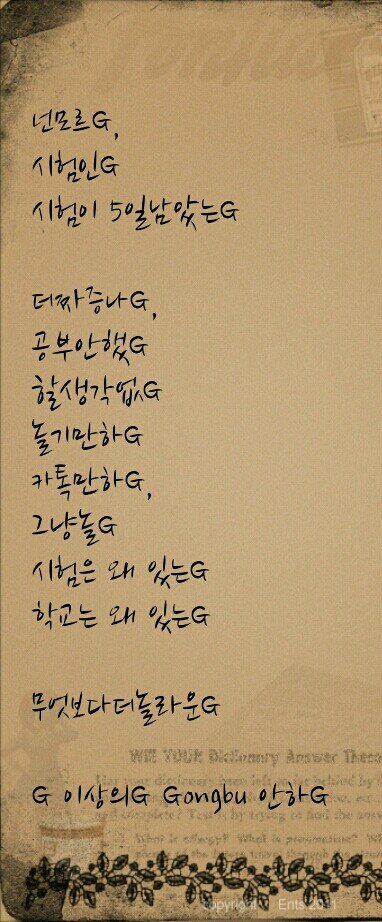 넌모르G,
시험인G
시험이 5일남았는G
더짜증나G,
공부안했G
할생각없G
놀기만하G
카톡만하G,
그냥놀G
시험은 왜 있는G
학교는 왜 있는G
무엇보다더놀라운G
WIll YOUR Dictionary Answer These
G 이상의G Gongbu 안하G
copyright Ents 2011